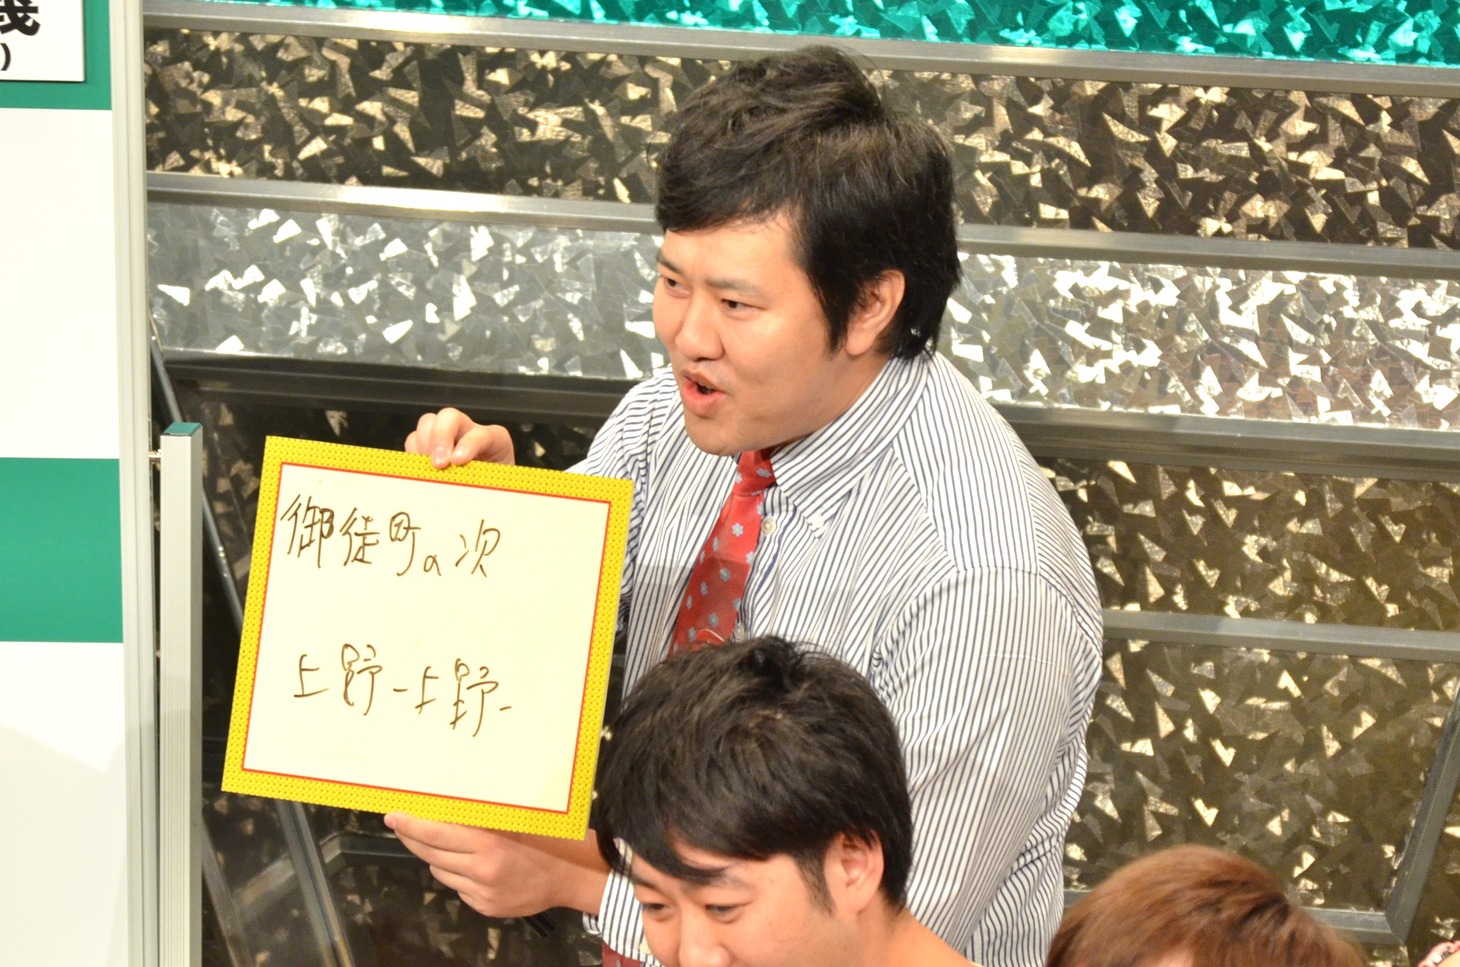 義
)
御徒町の次
上野ー上野ー